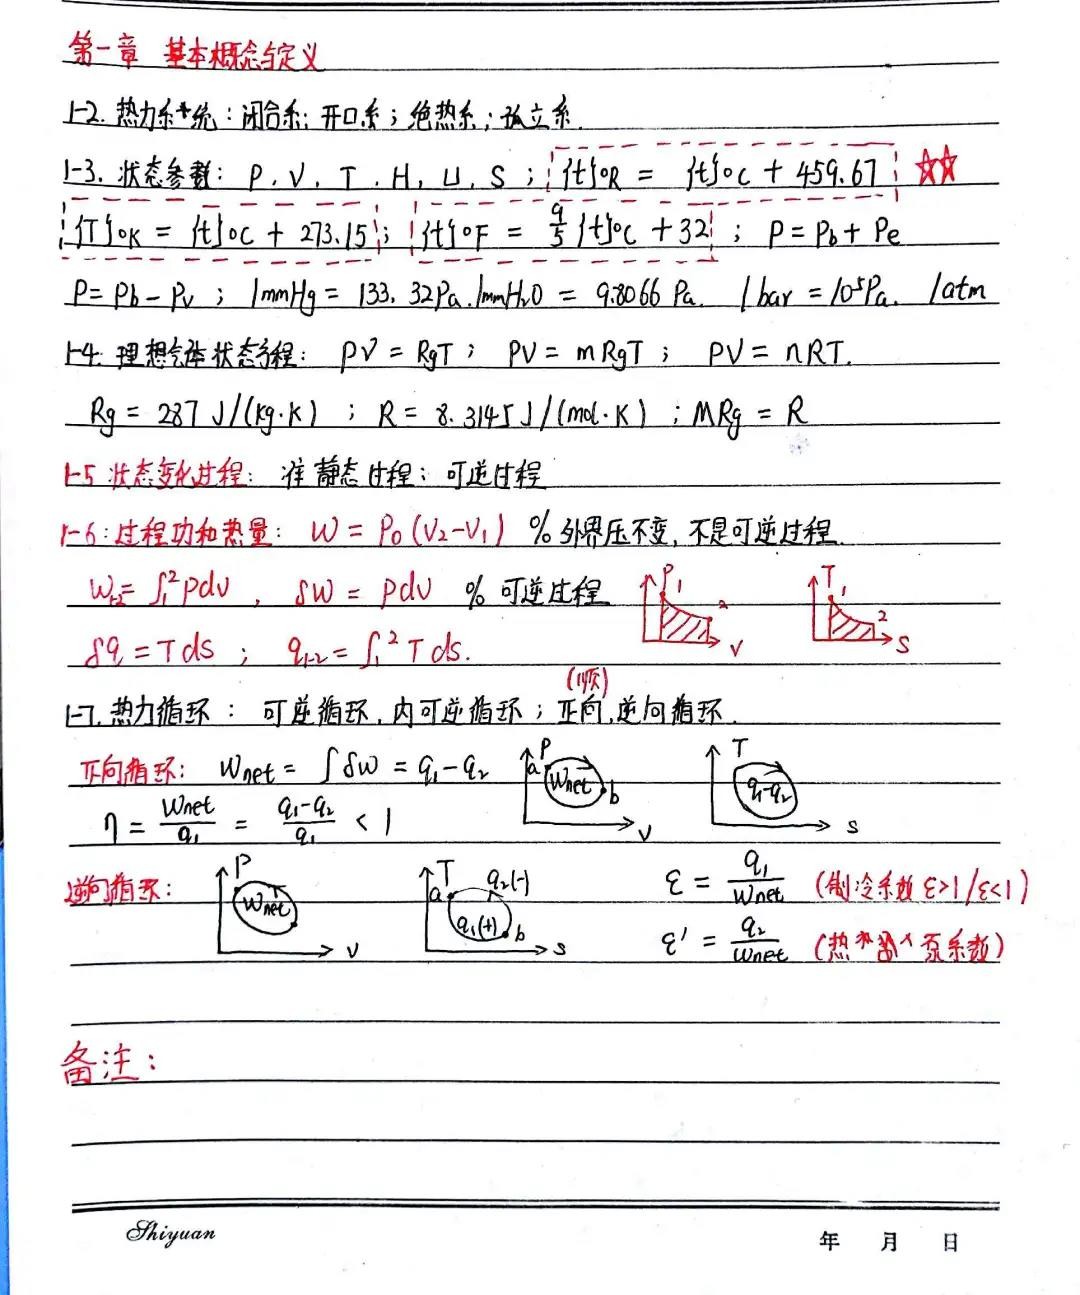 第一章 基本概念与定义
1-2. 热力系统：闭合系；开口系；绝热系；孤立系.
1-3. 状态参数：P, V, T, H, U, S；{t}°R = {t}°C + 459.67； ☆☆
{T}°K = {t}°C + 273.15； {t}°F = 9/5 {t}°C + 32； P = Pb + Pe
P = Pb - Pv； 1mmHg = 133.32Pa. 1mmH₂O = 9.8066 Pa. 1bar = 10⁵Pa. 1atm
1-4. 理想气体状态方程： pv = RgT； pV = mRgT； pV = nRT.
Rg = 287 J/(kg·K)； R = 8.3145 J/(mol·K)；MRg = R
1-5 状态变化过程： 准静态过程；可逆过程
1-6：过程功和热量： W = P₀(V₂-V₁) % 外界压不变, 不是可逆过程.
W₁₋₂ = ∫₁² pdv , δw = pdv % 可逆过程 P 1 2 V T 1 2 S
δq = Tds； q₁₋₂ = ∫₁² Tds.
(顺)
1-7. 热力循环： 可逆循环, 内可逆循环；正向, 逆向循环.
正向循环： Wnet = ∫δw = q₁-q₂ P a Wnet b V T q₁-q₂ S
η = Wnet/q₁ = (q₁-q₂)/q₁ < 1
逆向循环： P Wnet V T a q₂(-) q₁(+) b S ε = q₁/Wnet (制冷系数 ε>1/ε<1)
ε' = q₂/Wnet (热泵系数)
备注：
Shiyuan
年 月 日